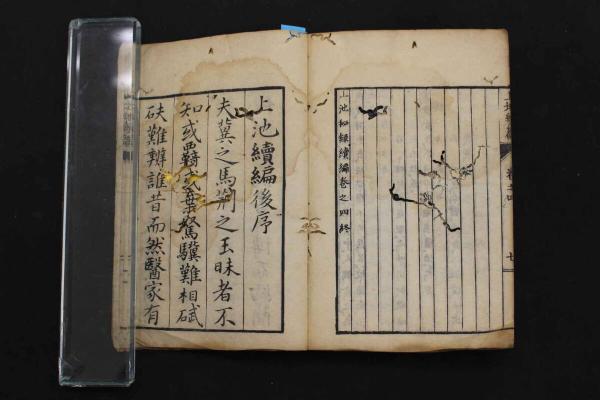 卷之四
七
上池秘録續編卷之四終
上池續編後序
夫冀之馬荊之玉昧者不
知或羈或棄駑驥難相碔
砆難辨誰昔而然醫家有